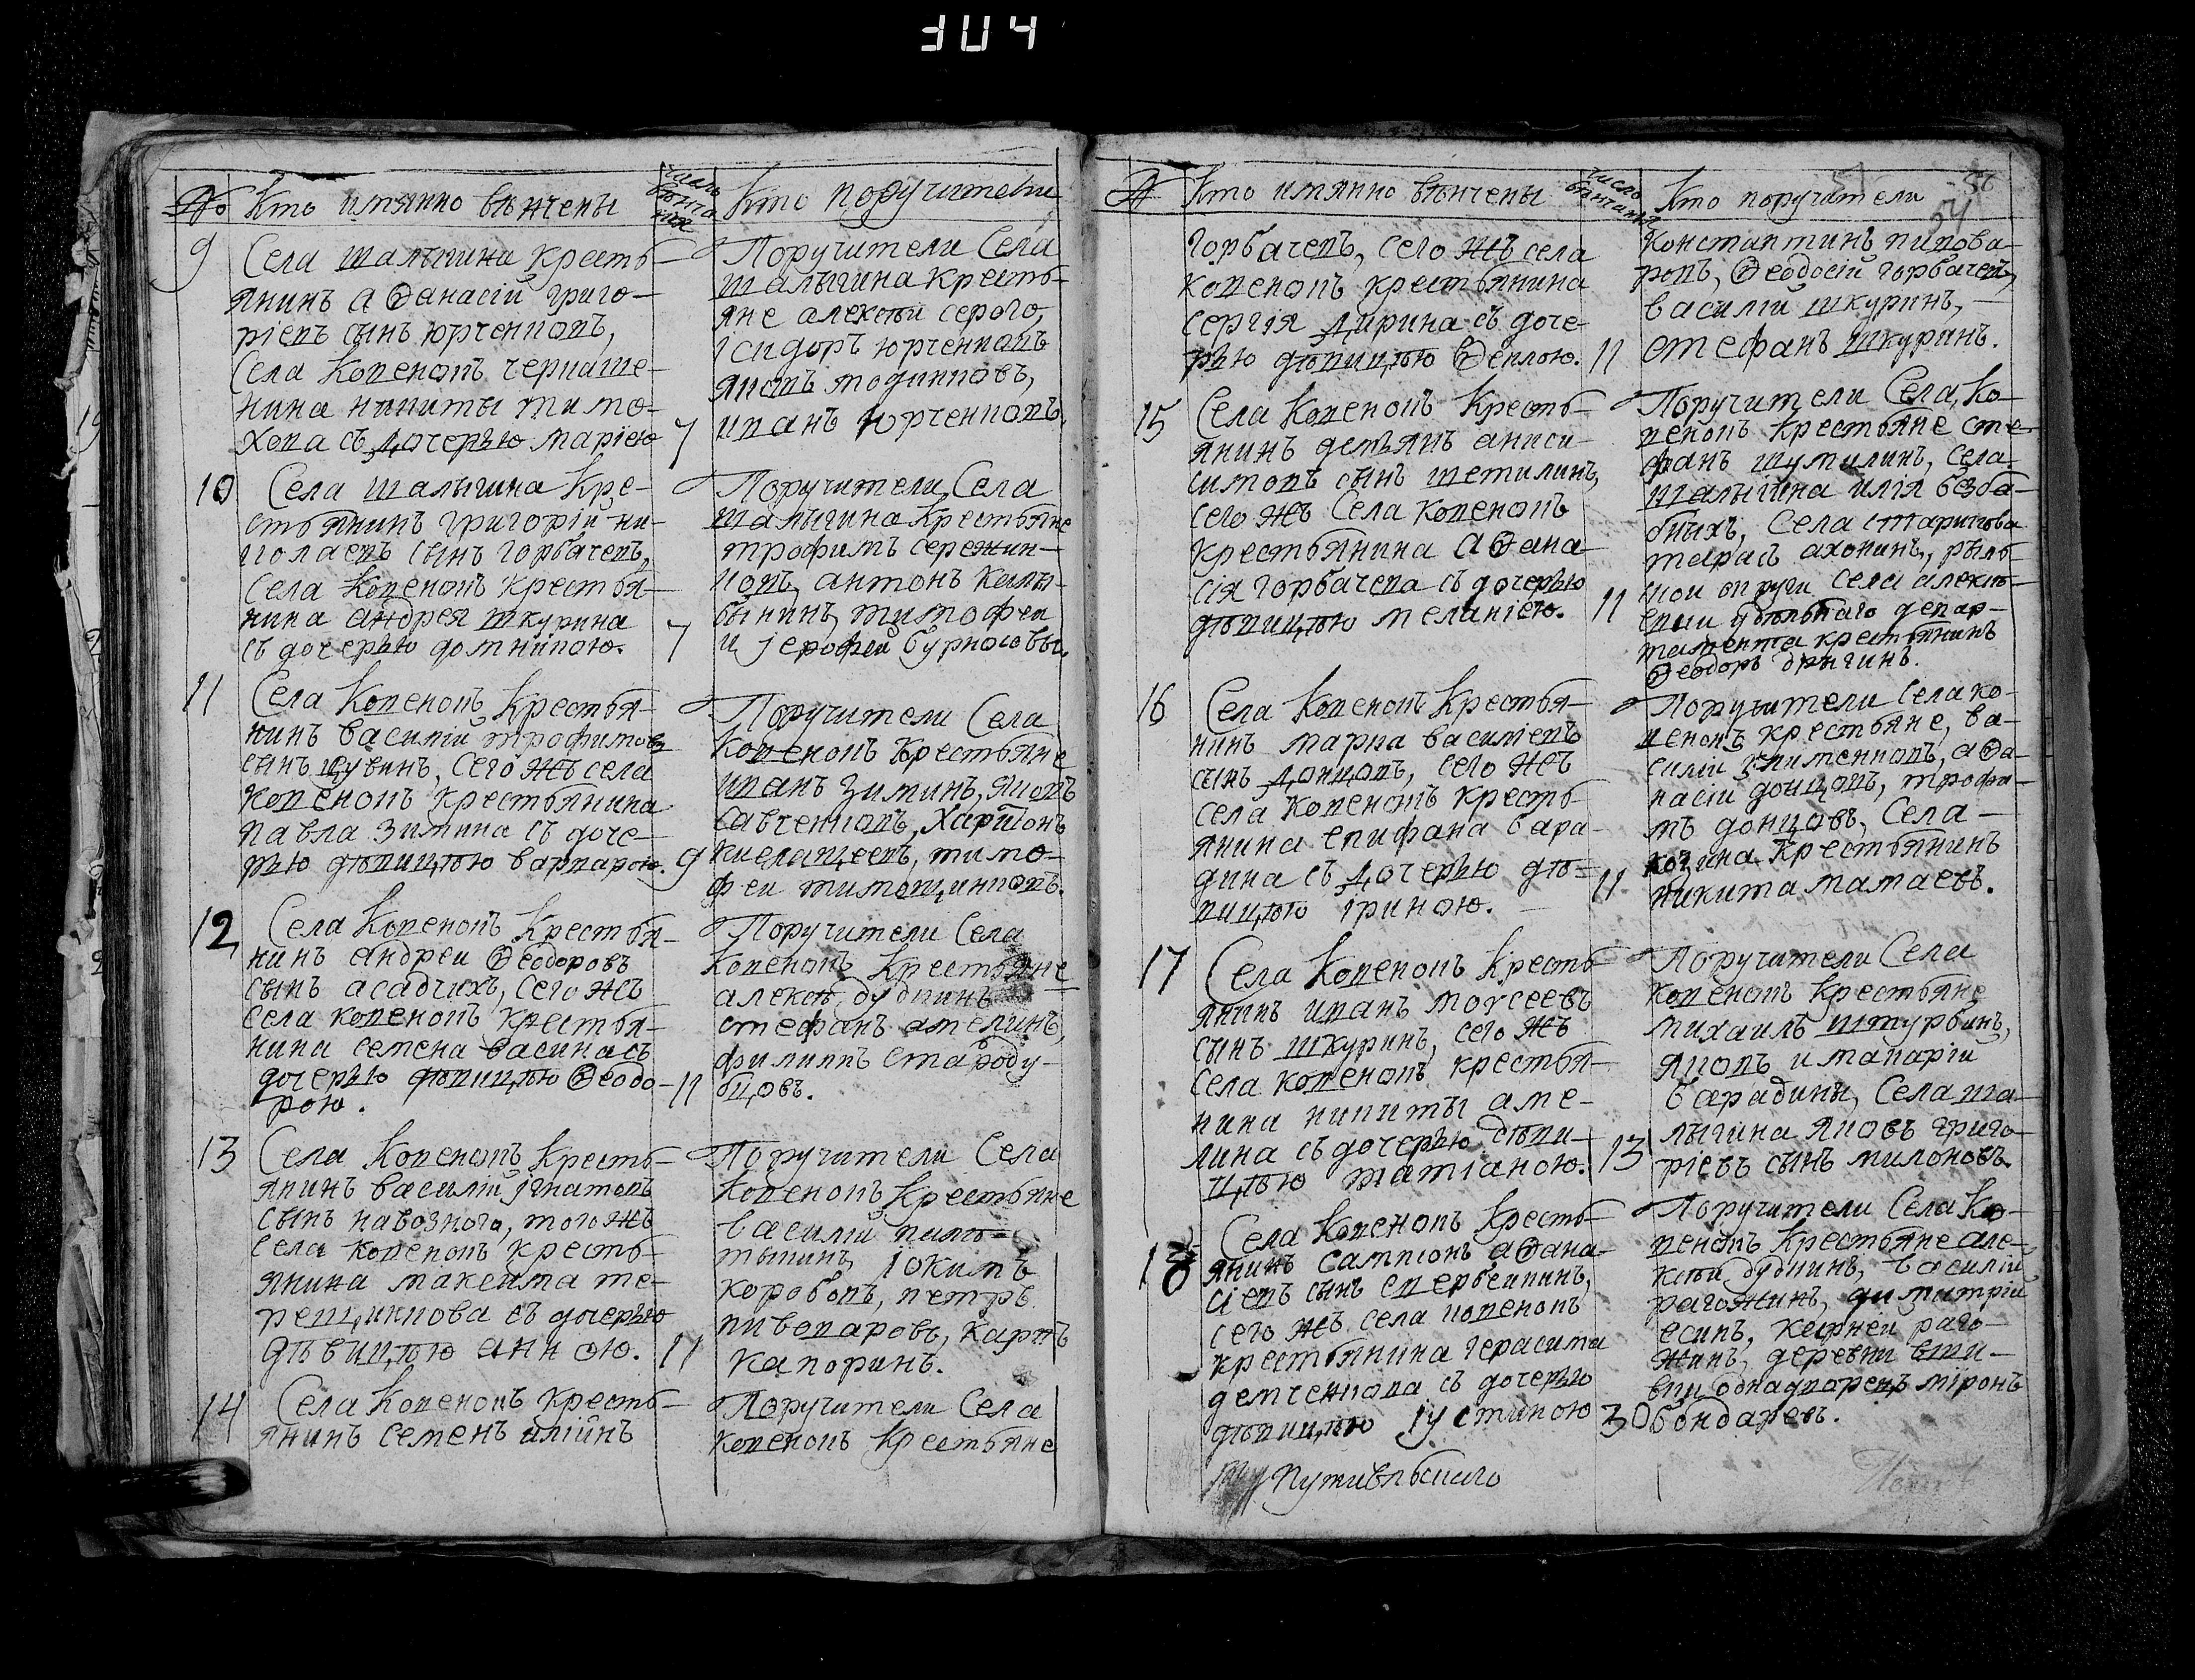 304
№ Кто имянно вѣнчены число вѣнча нія Кто поручители
9 Села шалыгина кресть-
янинъ аѳанасій григо-
ріевъ сынъ юрченковъ,
Села Коренокъ черкаше-
нина никиты тимо-
хова съ дочерью маріею 7
Поручители Села
шалыгина кресть-
яне алексѣй серого,
исидоръ юрченковъ
иванъ юрченковъ,
10 Села шалыгина кре-
стьянинъ григорій ни-
колаевъ сынъ горбачевъ,
Села Коренокъ крестья-
нина андрея шкурина
съ дочерью домникою. 7
Поручители Села
шалыгина крестьяне
трофимъ
антонъ
тимофеи
и іерофеи бурносовы.
11 Села Коренокъ крестья-
нинъ василій трофимовъ
сынъ Сего жъ села
Коренокъ крестьянина
павла зимина съ доче-
рью дѣвицѣю варварою. 9
Поручители Села
Коренокъ крестьяне
иванъ зиминъ, яковъ
савченковъ, харитонъ
тимо-
феи
12 Села Коренокъ крестья-
нинъ андреи ѳеодоровъ
сынъ асадчихъ, сего жъ
села коренокъ крестья-
нина семена васина съ
дочерью дѣвицѣю ѳеодо-
рою. 11
Поручители Села
Коренокъ крестьяне
алексѣ дудкинъ
стефанъ амелинъ,
филипъ староду-
бцовъ.
13 Села Коренокъ кресть-
янинъ василій ігнатовъ
сынъ навознога, того жъ
села коренокъ кресть-
янина максима те-
рещикова съ дочерью
дѣвицѣю анною. 11
Поручители Села
Коренокъ крестьяне
василій
іокимъ
коробовъ, петръ
пивоваровъ, карпъ
капоринъ.
14 Села Коренокъ кресть-
янинъ семенъ илійнъ
Поручители Села
коренокъ крестьяне
№ Кто имянно вѣнчены число вѣнчанія Кто поручители 54
горбачевъ, сего жъ села
коренокъ крестьянина
сергія дирина съ доче-
рью дѣвицѣю ѳеклою. 11
константинъ пивова-
ровъ, ѳеодосій горбачевъ,
василій шкуринъ,
стефанъ шкуринъ.
15 Села Коренокъ кресть-
янинъ демьянъ аниси-
симовъ сынъ шетилинъ,
сего жъ Села коренокъ
крестьянина аѳана-
сія горбачева съ дочерью
дѣвицѣю меланіею. 11
Поручители Села Ко-
ренокъ крестьяне сте-
фанъ шумилинъ, села
шалыгина илія безба-
бныхъ, села старикова
тарасъ ахонинъ, рыль-
скои округи села алексѣ-
евки удѣльнаго депар-
тамента крестьянинъ
ѳеодоръ дрыгинъ.
16 Села Коренокъ крестья-
нинъ марка василіевъ
сынъ донцовъ, сего жъ
села коренокъ кресть-
янина епифана бара-
дина съ дочерью дѣ-
вицѣю іриною. 11
Поручители села ко-
ренокъ крестьяне, ва-
силіи аѳа-
насіи донцовъ, трофи-
мъ донцовъ, Села
козина крестьянинъ
никита мамаевъ.
17 Села Коренокъ кресть-
янинъ иванъ моѵсеевъ
сынъ шкуринъ, сего жъ
села коренокъ крестья-
нина никиты аме-
лина съ дочерью дѣви-
цѣю татіаною. 13
Поручители Села
коренокъ крестьяне
михаилъ штурбинъ,
яковъ и макаріи
барадины, Села ша-
лыгина яковъ григо-
ріевъ сынъ милоновъ.
18 Села Коренокъ кресть-
янинъ сампсонъ аѳана-
сіевъ сынъ
сего жъ села коренокъ
крестьянина герасима
демченкова съ дочерью
дѣвицѣю іустиною 30
Поручители Села Ко-
ренокъ крестьяне але-
ксѣи дудкинъ, василій
рагожинъ, димитріи
есинъ, карнеи раго-
жинъ, деревни
однадворецъ міронъ
бондаревъ.
путивльскаго